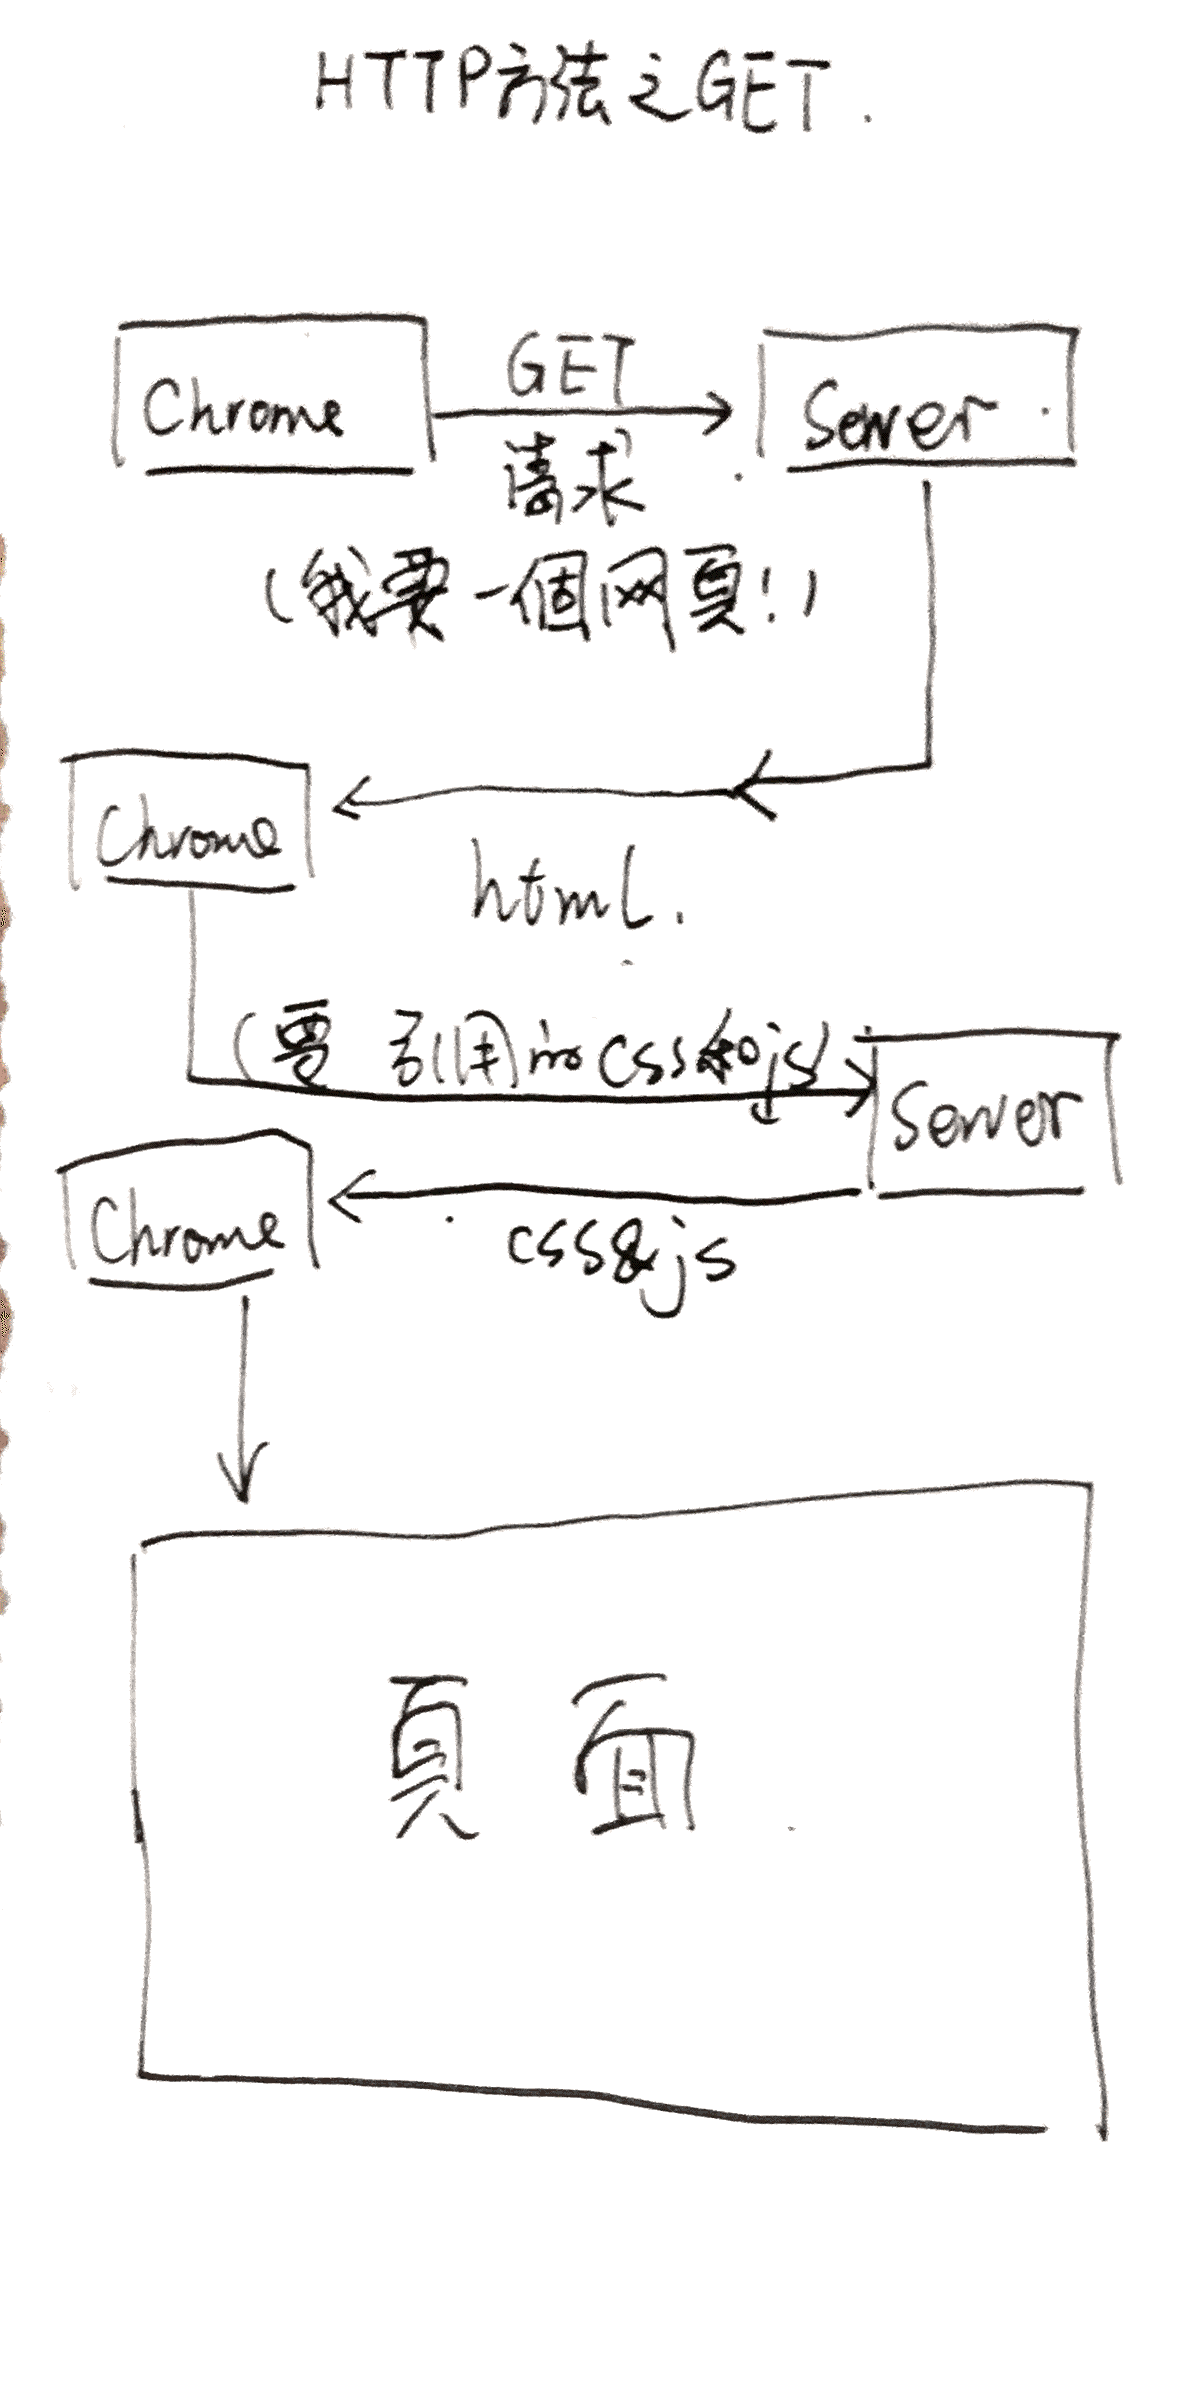 HTTP方法之GET.
Chrome
GET
請求
Server
(我要一個网頁!)
Chrome
html.
(要 引用的css和js)
Server
Chrome
css&js
頁面